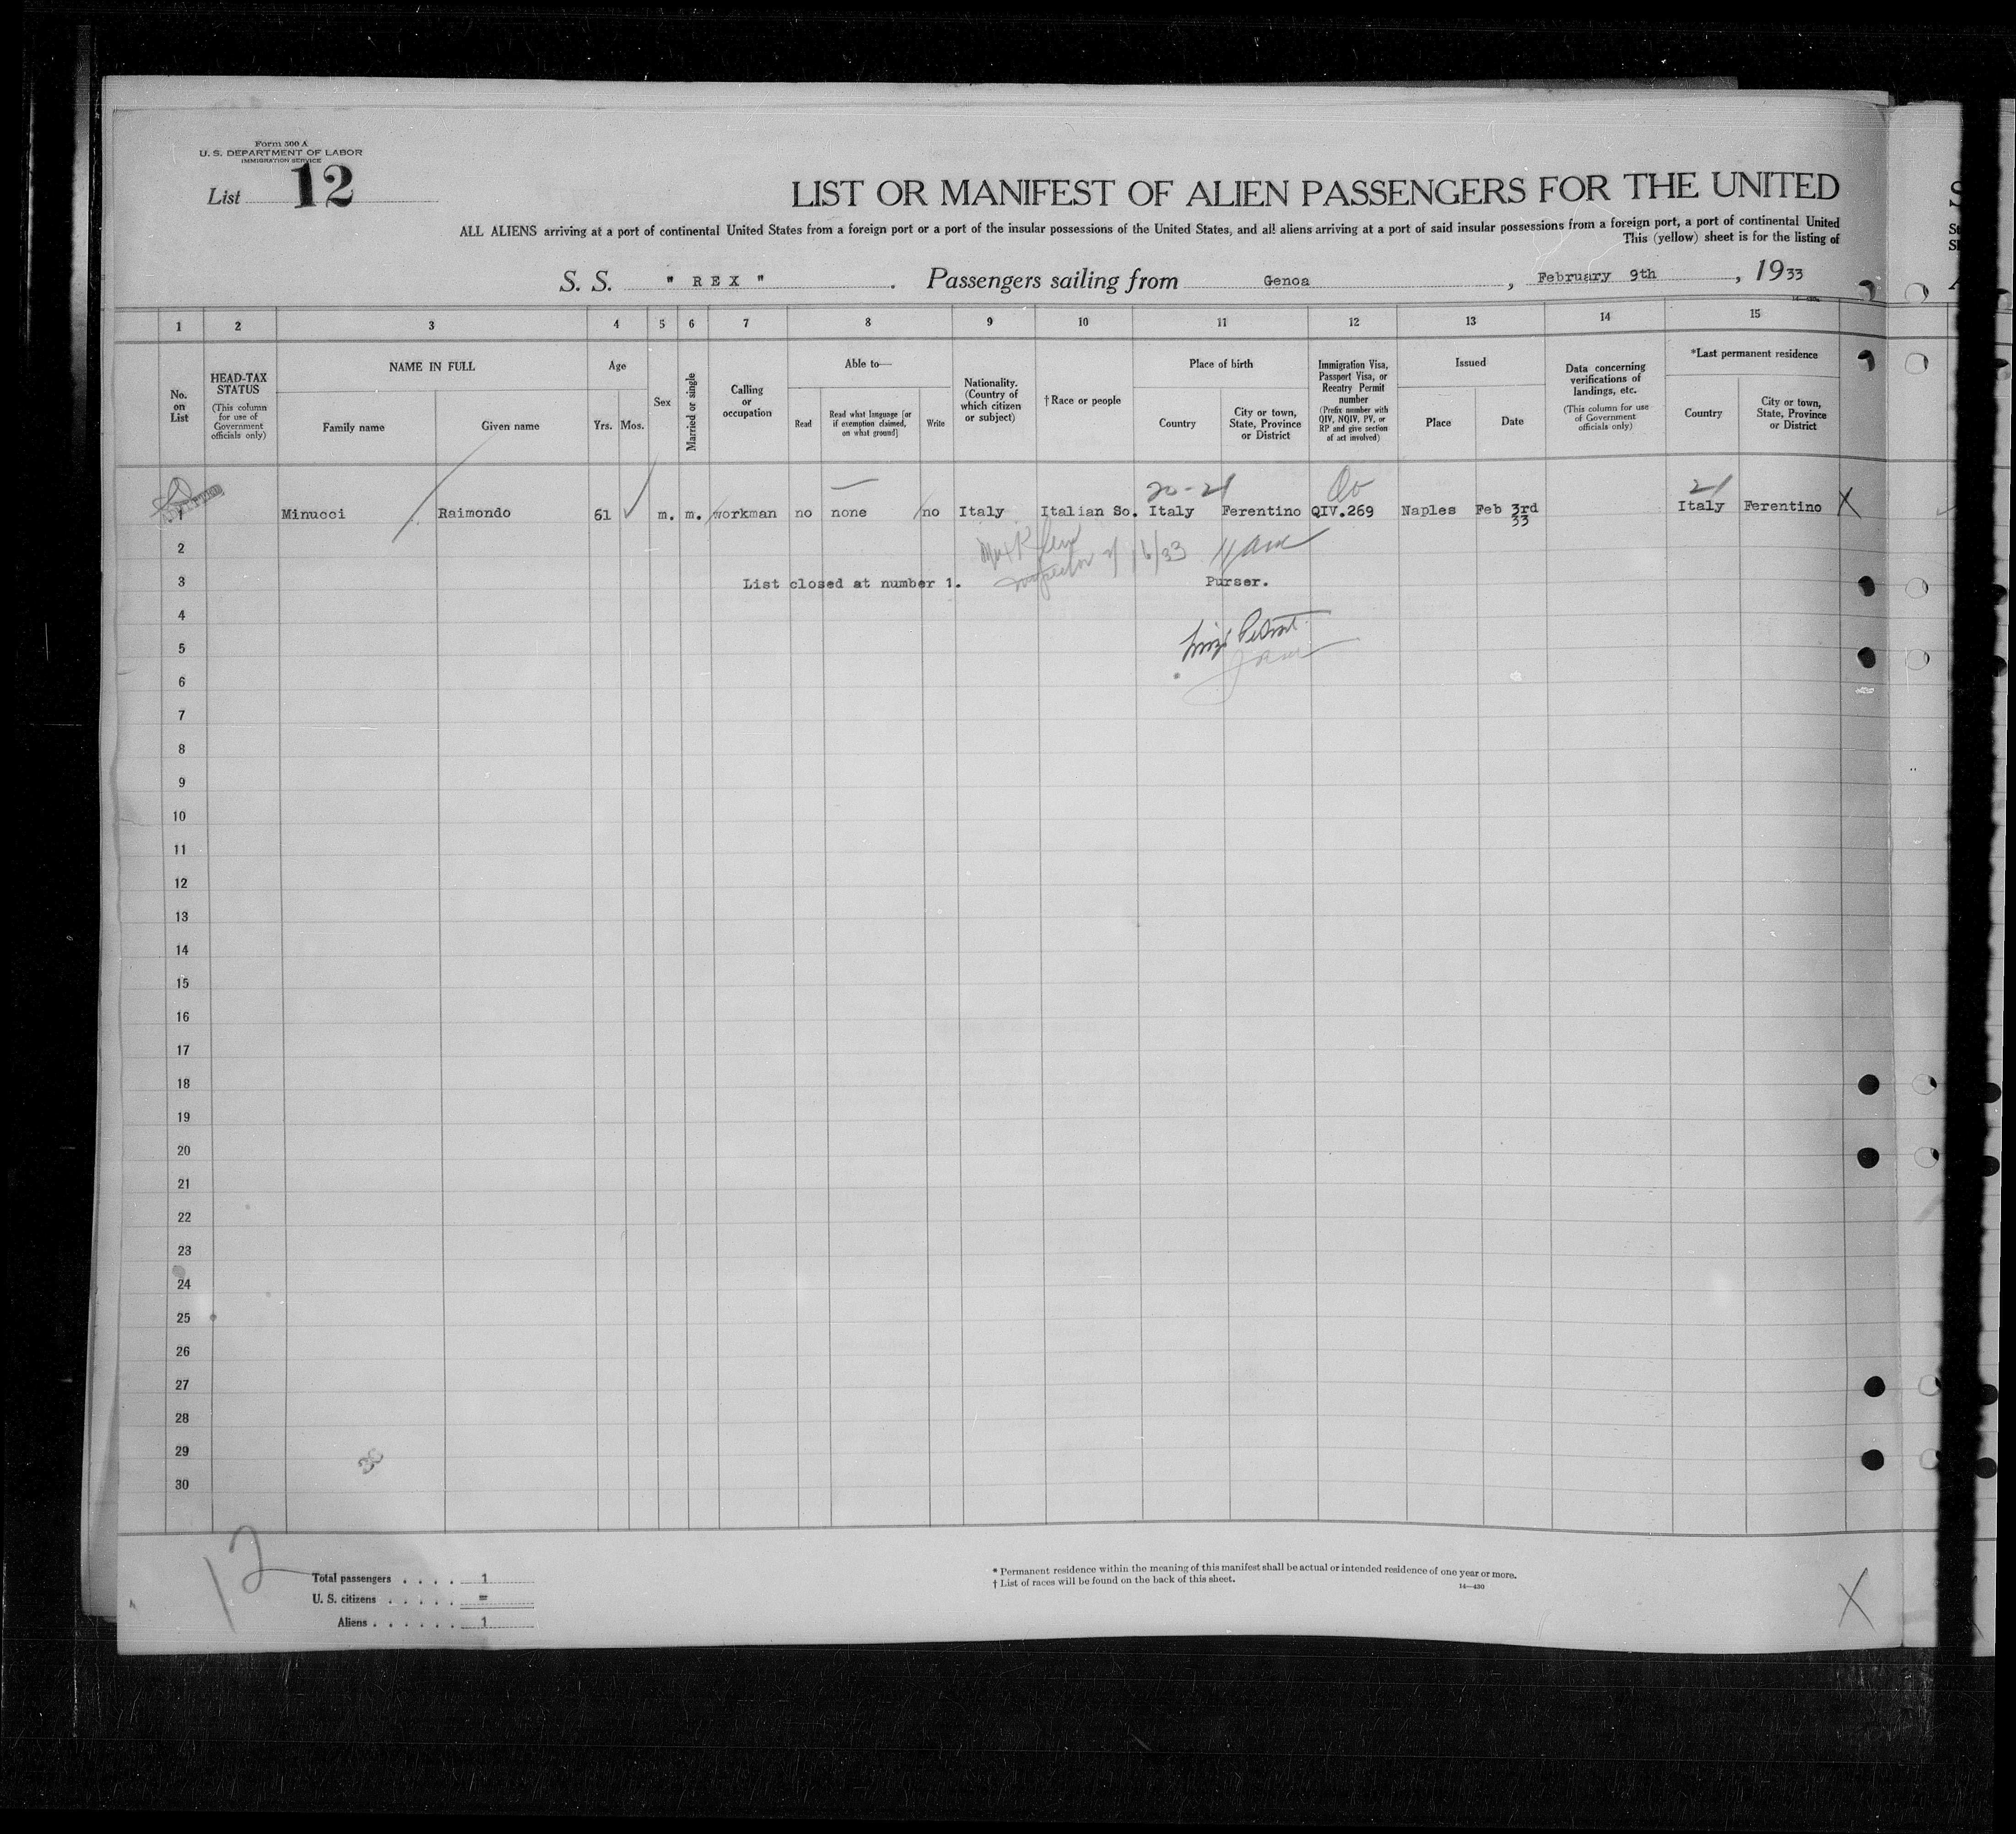 Form 500 A
U. S. DEPARTMENT OF LABOR
IMMIGRATION SERVICE
List 12
LIST OR MANIFEST OF ALIEN PASSENGERS FOR THE UNITED
ALL ALIENS arriving at a port of continental United States from a foreign port or a port of the insular possessions of the United States, and all aliens arriving at a port of said insular possessions from a foreign port, a port of continental United
This (yellow) sheet is for the listing of
S. S. " R E X " . Passengers sailing from Genoa , February 9th , 1933
1 2 3 4 5 6 7 8 9 10 11 12 13 14 15
No. on List
HEAD-TAX STATUS
(This column for use of Government officials only)
NAME IN FULL
Family name Given name
Age
Yrs. Mos.
Sex
Married or single
Calling or occupation
Able to—
Read
Read what language [or if exemption claimed, on what ground]
Write
Nationality. (Country of which citizen or subject)
†Race or people
Place of birth
Country
City or town, State, Province or District
Immigration Visa, Passport Visa, or Reentry Permit number
(Prefix number with QIV, NQIV, PV, or RP and give section of act involved)
Issued
Place Date
Data concerning verifications of landings, etc.
(This column for use of Government officials only)
*Last permanent residence
Country
City or town, State, Province or District
20-21 21
1 Minucci Raimondo 61 m. m. workman no none no Italy Italian So. Italy Ferentino QIV.269 Naples Feb 3rd 33 Italy Ferentino X
2
3 List closed at number 1. Purser.
4
5
6
7
8
9
10
11
12
13
14
15
16
17
18
19
20
21
22
23
24
25
26
27
28
29
30
12
Total passengers . . . . 1
U. S. citizens . . . . . =
Aliens . . . . . . 1
* Permanent residence within the meaning of this manifest shall be actual or intended residence of one year or more.
† List of races will be found on the back of this sheet.
14—430
X